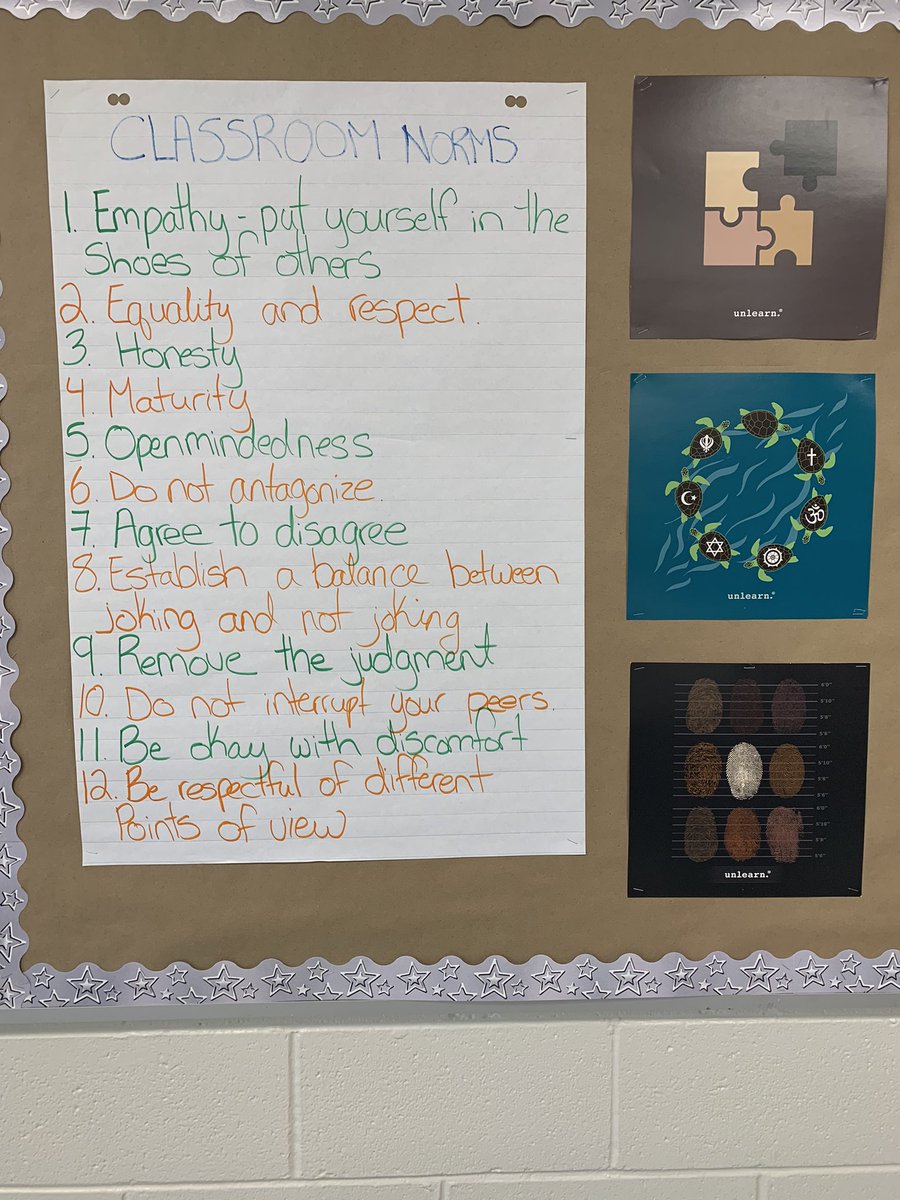 CLASSROOM NORMS
1. Empathy - put yourself in the
Shoes of others
2. Equality and respect.
3. Honesty
4. Maturity
5. Openmindedness
6. Do not antagonize.
7. Agree to disagree
8. Establish a balance between
joking and not joking
9. Remove the judgment
10. Do not interrupt your peers.
11. Be okay with discomfort
12. Be respectful of different
Points of view
unlearn.®
unlearn.®
6'0"
5'10"
5'8"
6'0"
5'10"
5'8"
5'6"
6'0"
5'10"
5'6"
unlearn.®